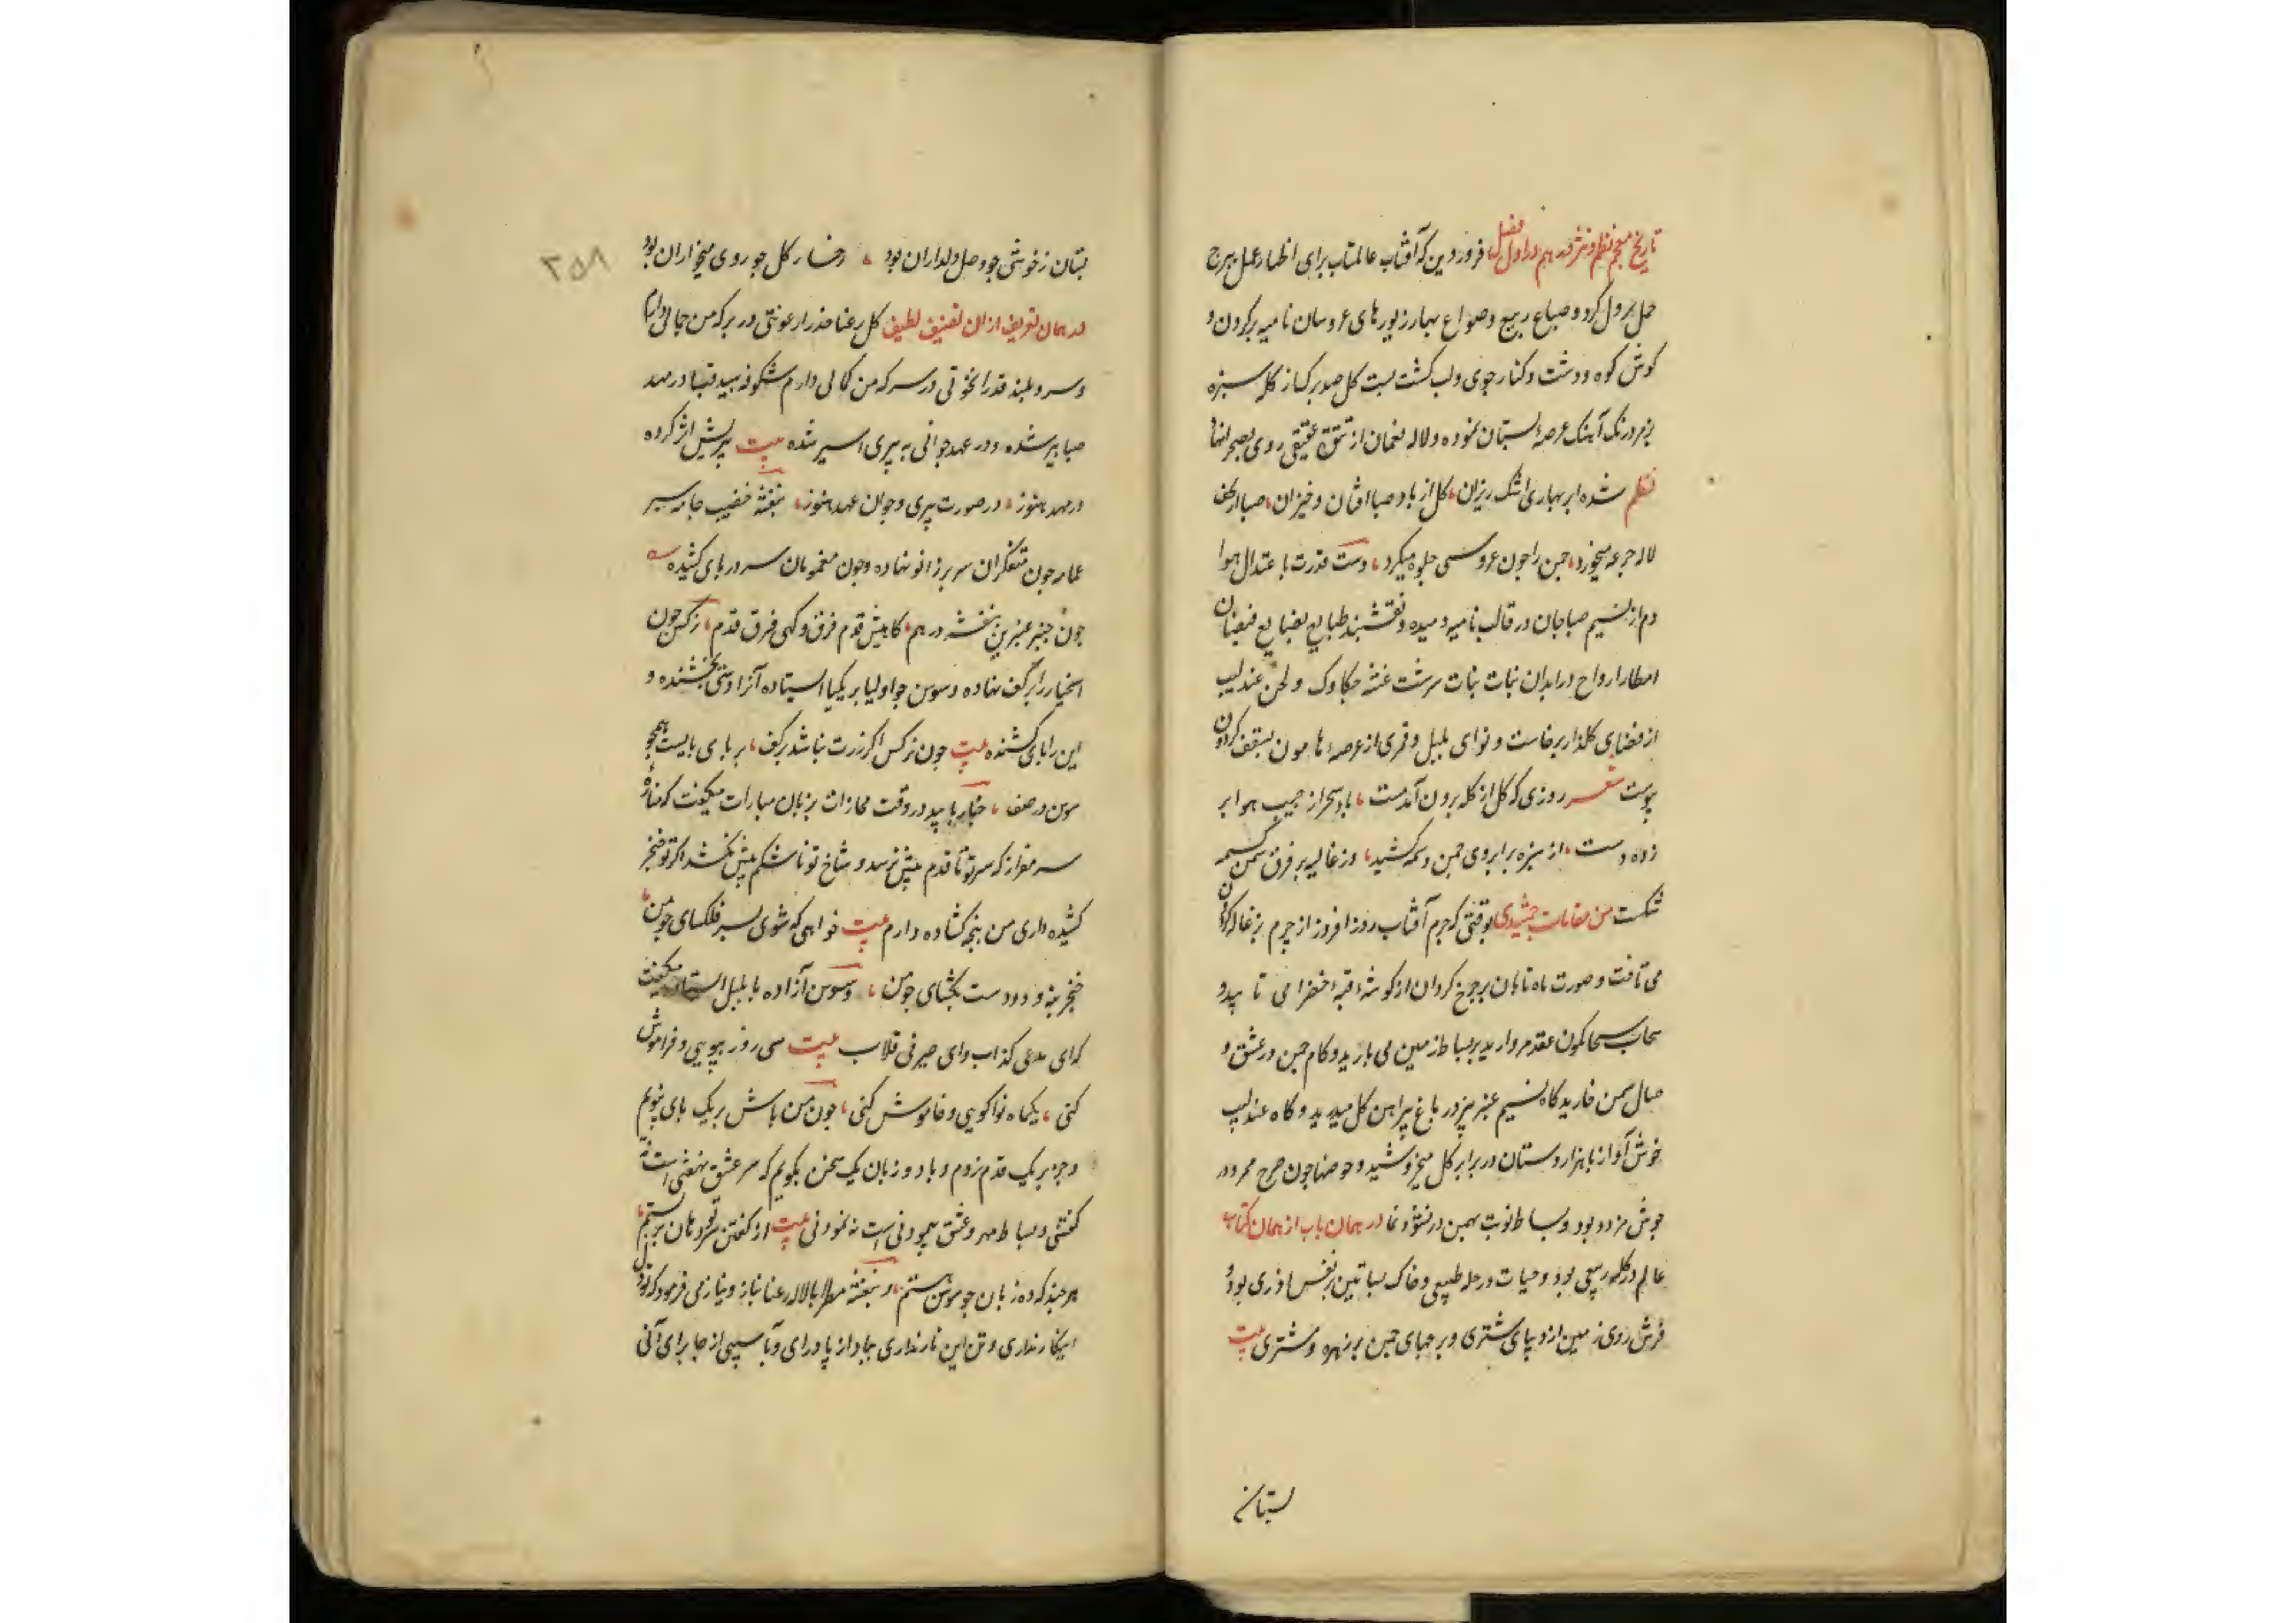 تاریخ معجم نظم و نثر در هم در اول فصل فروردین که آفتاب عالمتاب برای اظهار عمل ببرج
حمل نزول کرد و صباغ ربیع و صواغ بهار زیورهای عروسان نامیه بر کردن و
کوش کوه و دشت و کنار جوی و لب کشت بست کل صد برک از کله سبزه
زمرد رنک آهنک عرصه بستان نموده و لاله نعمان از تتق عقیقی روی بصحرا نهاد
نظم شده ابر بهاری اشک ریزان کل از باد صبا افتان و خیزان صبا از کف
لاله جرعه میخورد چمن را چون عروسی جلوه میکرد دست قدرت باعتدال هوا
دم از نسیم صبا جان در قالب نامیه دمیده و نقشبند طبایع بصنایع فیضان
امطار ارواح در ابدان نبات بنات سرشت غنه چکاوک و لحن عندلیب
از فضای کلذار برخاست و نوای بلبل و قمری از عرصه هامون بسقف کردون
پیوست شعر روزی که کل از کله برون آمدست باد سحر از جیب هوا بر
زده دست از سبزه بر ابروی چمن وسمه کشید وز غالیه بر فرق سمن کسمه
شکست من مقامات حمیدی بوقتی که جرم آفتاب روز افروز از چرم بزغاله کردون
می تافت و صورت ماه تابان بر چرخ کردان از کوشه قبه خضرا می تابید و
سحاب سحابکون عقد مروارید بر بساط زمین می بارید و کام چمن در عشق و
صال سمن خارید کاه نسیم عنبر بیز در باغ پیراهن کل میدرید و کاه عندلیب
خوش آواز با هزار دستان در برابر کل میخروشید و حوضها چون صرح ممرد در
جوش مزرد بود و بساط نوبت بهمن در نشو و نما در همان باب از همان کتاب
عالم در کله ربیعی بود و حیات در حله طبیعی و خاک بساتین بر نفس اذری بود و
فرش روی زمین از دیبای ششتری و برجهای چمن بر زهره و مشتری بیت
بستان
بستان ز خوشی چو وصل دلداران بود رخسار کل چو روی میخواران بود
در همان تعریف از ان تصنیف لطیف کل رعنا عذرا رعونتی در بر که من جمالی دارم
و سرو بلند قد را نخوتی در سر که من کمالی دارم شکوفه سپید قبا در مهد
صبا پیر شده و در عهد جوانی به پیری اسیر شده بیت پیریش اثر کرده
در مهد هنوز در صورت پیری و جوان عهد هنوز بنفشه خضیب جامه سیر
عمامه چون متفکران سر بر زانو نهاده و چون مغمومان سر در پای کشیده
چون چنبر عنبرین بنفشه در هم کاهیش قدم فرق و کهی فرق قدم نرکس چون
اسخیا زر بر کف نهاده و سوسن چو اولیا بر یکپا ایستاده آنرا دستی بخشنده و
این را پای کشنده بیت چون نرکس اکر زرت نباشد بر کف بر پای بایست همچو
سوسن در صف چنار با بید در وقت محازات بزبان مبارات میکفت که منازه
سر مفراز که سر تو تا قدم بیش نرسد و شاخ تو تا شکم بیش نکشد اکر تو خنجر
کشیده داری من پنجه کشاده دارم بیت خواهی که شوی بسر فلکسای چو من
خنجر بنه و دو دست بکشای چو من و سوسن آزاده با بلبل استاد میکفت
که ای مدعی کذاب و ای صیرفی قلاب بیت سی روز ببویی و فراموش
کنی یکماه نوا کویی و خاموش کنی چون من باش بر یک پای بپویم
و جز بر یک قدم نروم و با ده زبان یک سخن بکویم که سر عشق نهفتی است نه
کفتنی و بساط مهر و عشق پیمودنی است نه نمودنی بیت از کفتن سر تو دهان بر بستم
هر چند که ده زبان چو سوسن هستم و بنفشه مطرا با لاله رعنا بناز و نیاز می فرمود که تو دل
اینکار نداری و تن این نار نداری بباد از پا درای و بآسیبی از جا برای آنی
۲۵۸